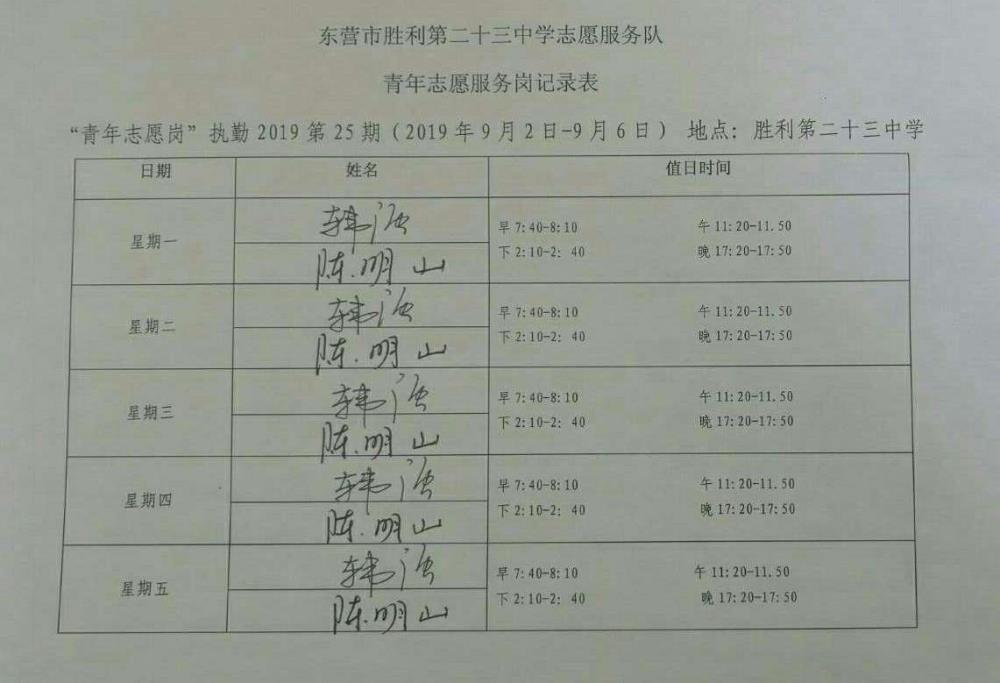 东营市胜利第二十三中学志愿服务队
青年志愿服务岗记录表
“青年志愿岗”执勤 2019 第 25 期（2019 年 9 月 2 日-9 月 6 日） 地点：胜利第二十三中学
日期 姓名 值日时间
星期一
韩
陈明山
早 7:40-8:10 午 11:20-11.50
下 2:10-2: 40 晚 17:20-17:50
星期二
韩
陈明山
早 7:40-8:10 午 11:20-11.50
下 2:10-2: 40 晚 17:20-17:50
星期三
韩
陈明山
早 7:40-8:10 午 11:20-11.50
下 2:10-2: 40 晚 17:20-17:50
星期四
韩
陈明山
早 7:40-8:10 午 11:20-11.50
下 2:10-2: 40 晚 17:20-17:50
星期五
韩
陈明山
早 7:40-8:10 午 11:20-11.50
下 2:10-2: 40 晚 17:20-17:50